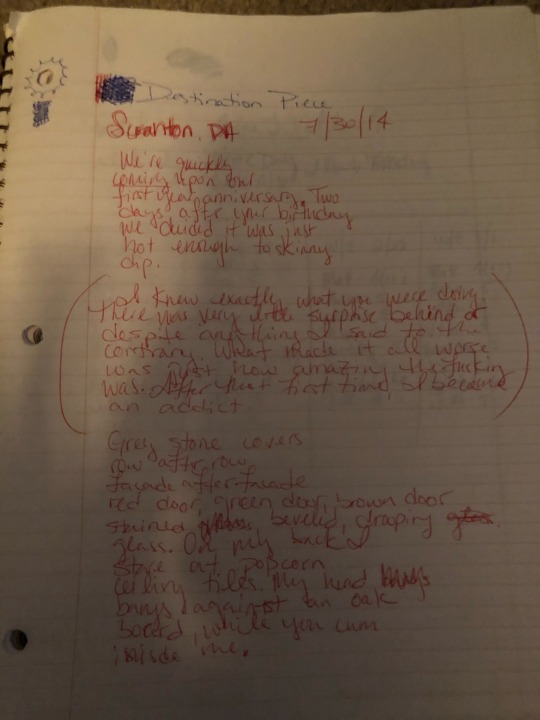 Destination Piece
Scranton, PA 7/30/14
We're quickly
coming upon our
first year anniversary. Two
days after your birthday
we decided it was just
hot enough to skinny
dip.
I knew exactly what you were doing
there was very little surprise behind it
despite anything I said to the
contrary. What made it all worse
was just how amazing the fucking
was. After that first time, I became
an addict.
Grey stone covers
row after row
facade after facade
red door, green door, brown door
stained glass, beveled, drooping
glass. On my back I
stare at popcorn
ceiling tiles. My head
bangs against an oak
board, while you cum
inisde me.